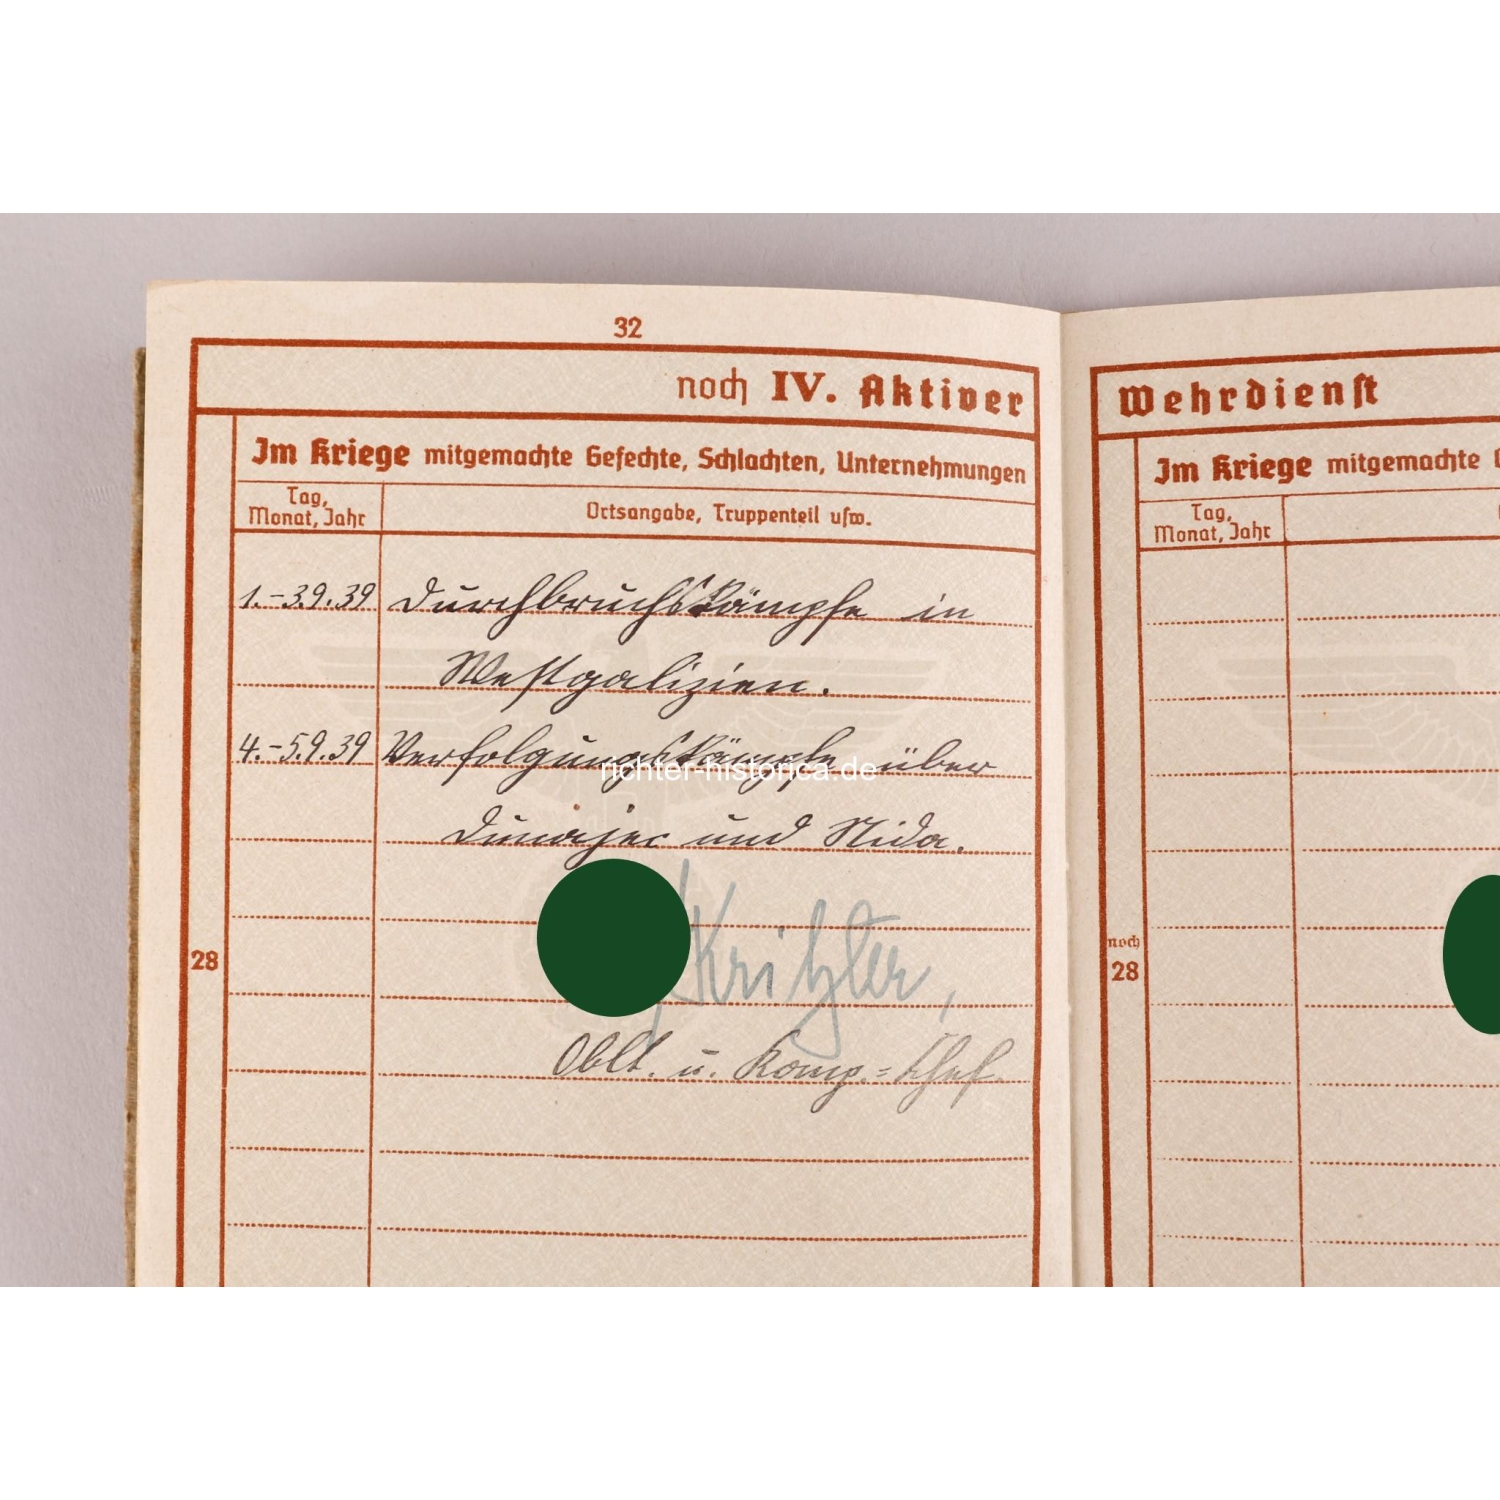 32
noch IV. Aktiver
Im Kriege mitgemachte Gefechte, Schlachten, Unternehmungen
Tag,
Monat, Jahr
Ortsangabe, Truppenteil usw.
1.-3.9.39 Durchbruchskämpfe in
Westgalizien.
4.-5.9.39 Verfolgungskämpfe über
Dunajec und Nida.
28
Oblt. u. Komp.=Chef.
richter-historica.de
Wehrdienst
Im Kriege mitgemachte
Tag,
Monat, Jahr
noch
28